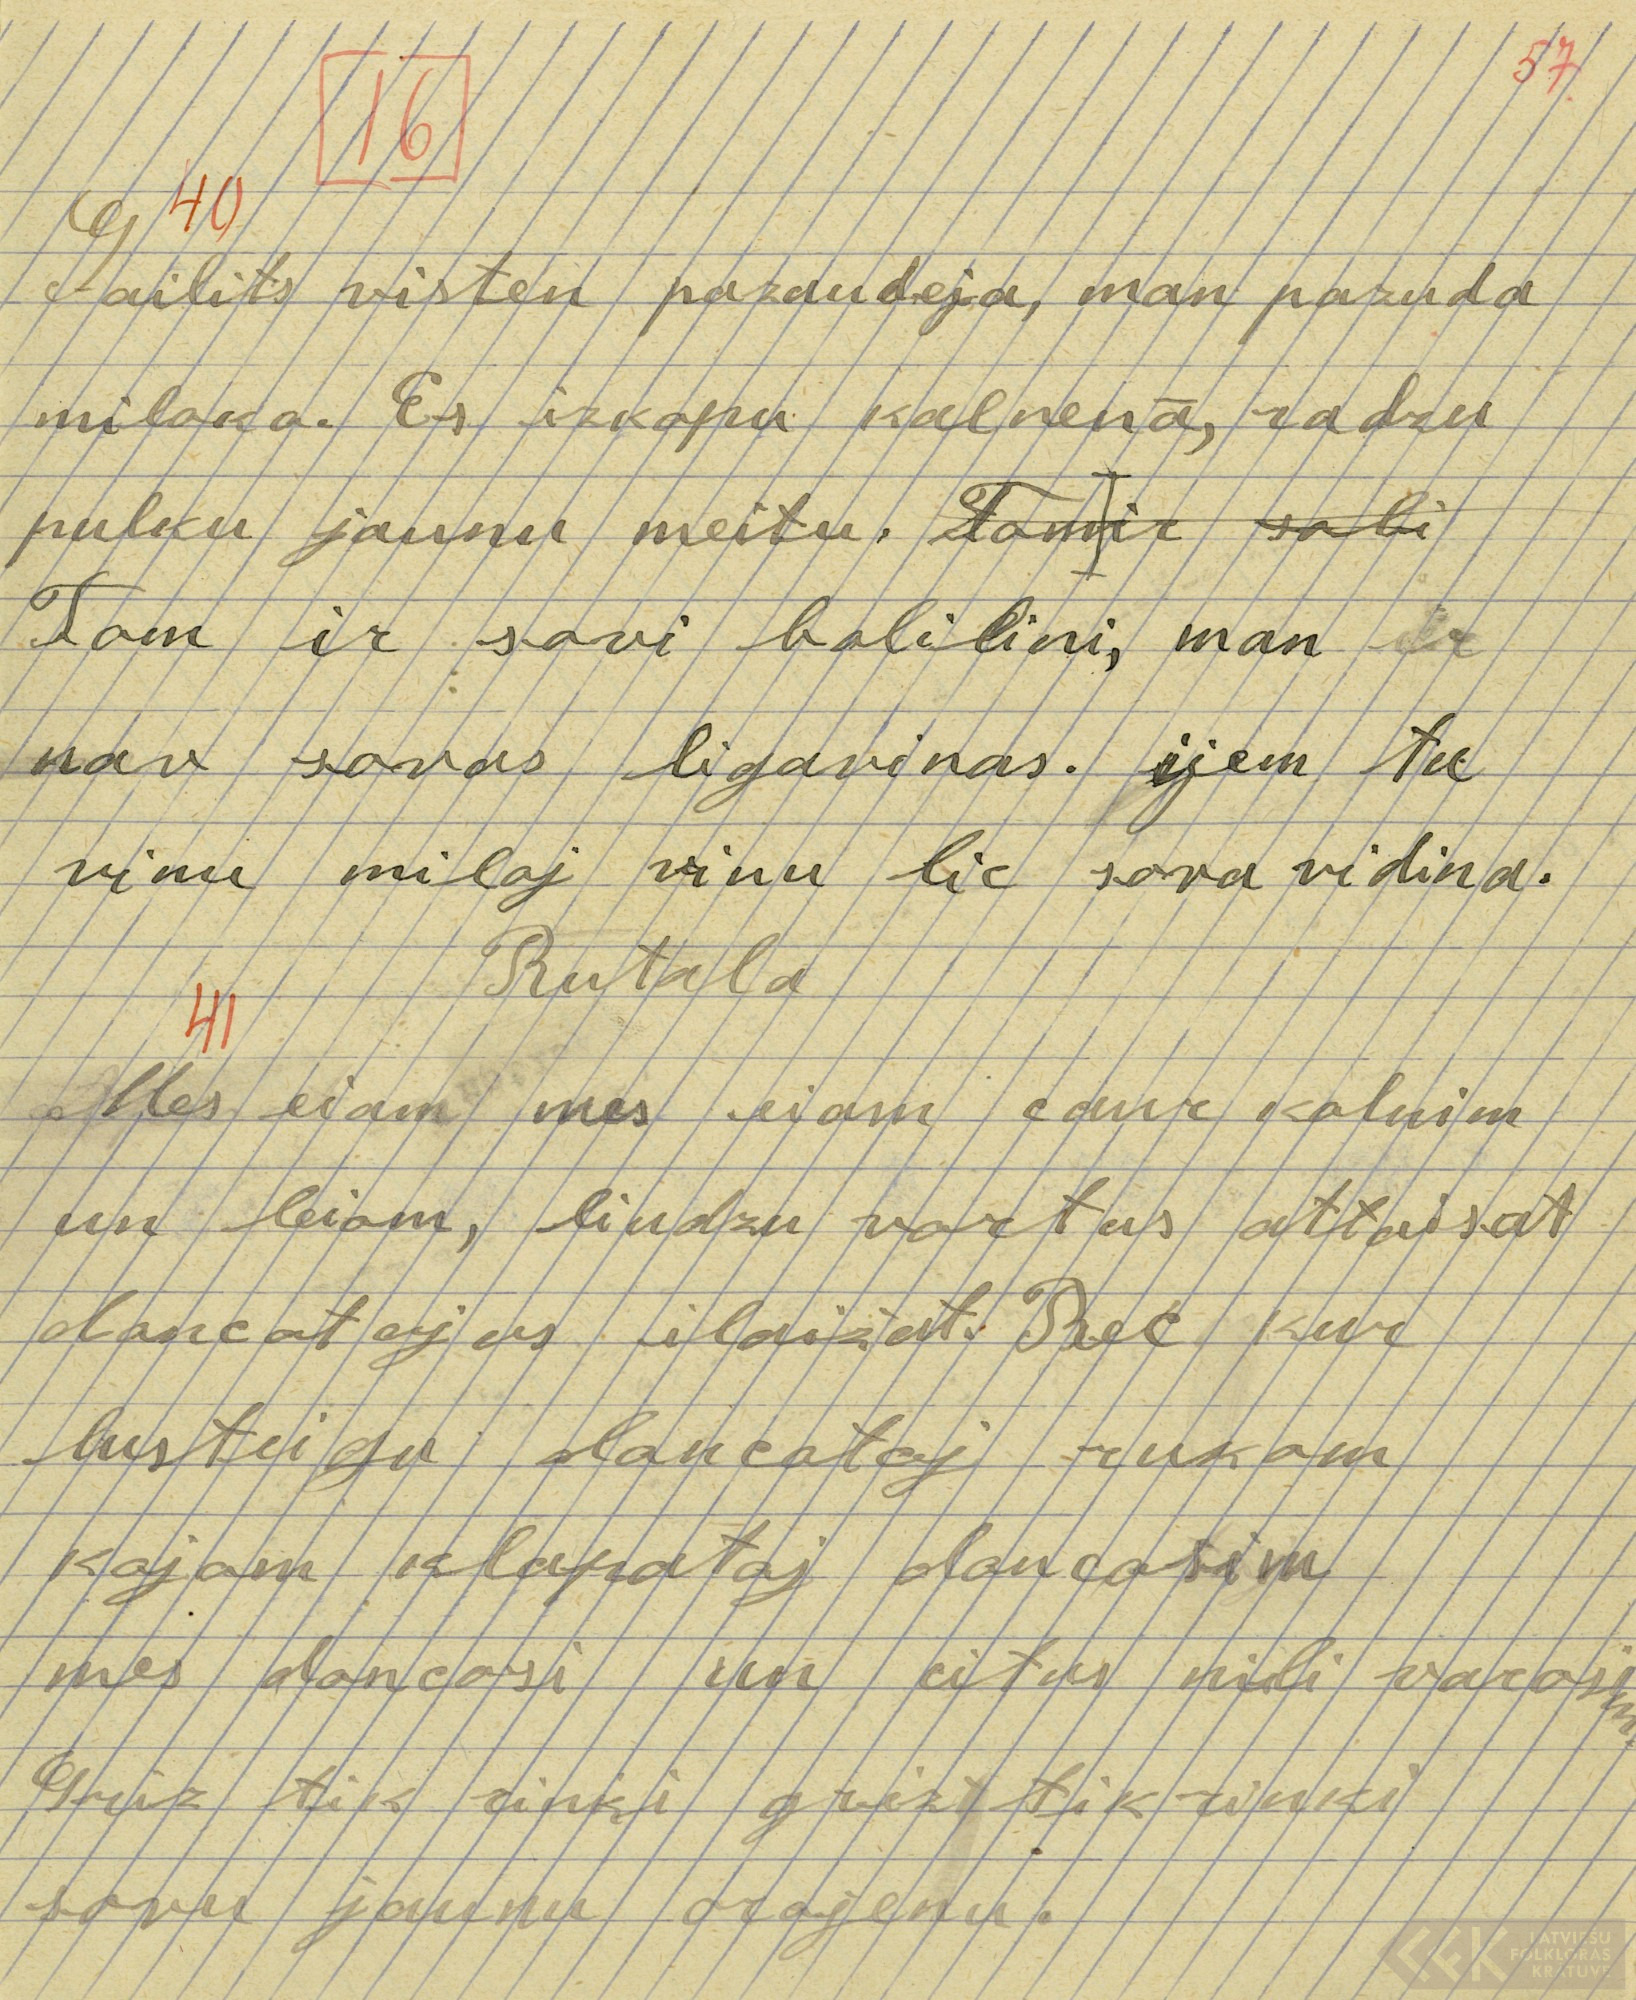 57.
16
40
Gailits visten pazaudeja, man pazuda
milaka. Es izkapu kalnenā, radzu
pulku jaunu meitu. Tam ir sabi
Tam ir savi balilini, man ir
nav savas ligavinas. jem tu
vinu milaj vinu lic sava vidina.
Rutala
41
Mes eiam mes eiam caur kalnim
un leiam, liudzu vartus attaisat
dancatajus ilaižat. Rec kur
lusteigu dancataj rukam
kajam klapataj dancasim
mes dancasi un citus nili varasim
Griz tik rinki grizt tik rinki
savu jaunu arajenu.
LATVIEŠU
FOLKLORAS
KRĀTUVE